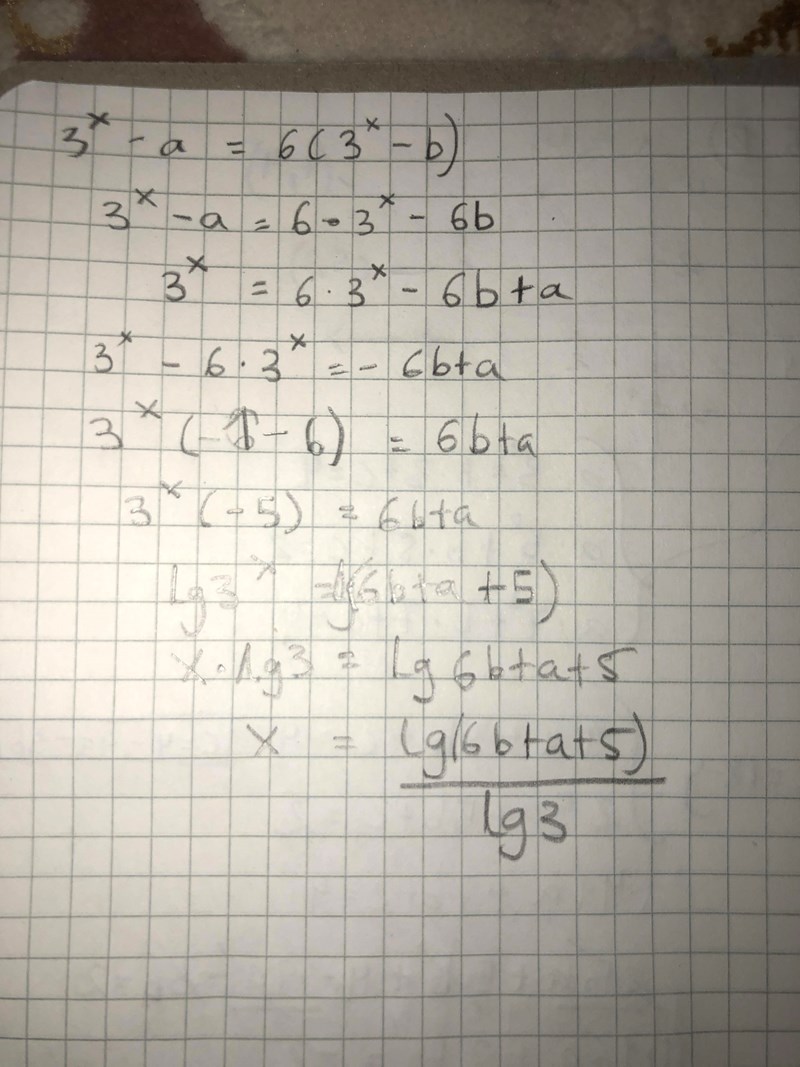 3ˣ - a = 6(3ˣ - b)
3ˣ - a = 6 · 3ˣ - 6b
3ˣ = 6 · 3ˣ - 6b + a
3ˣ - 6 · 3ˣ = - 6b+a
3ˣ (-1 - 6) = 6b+a
3ˣ (-5) = 6b+a
lg3ˣ = lg(6b+a+5)
x · lg3 = lg 6b+a+5
x = lg(6b+a+5)
lg3